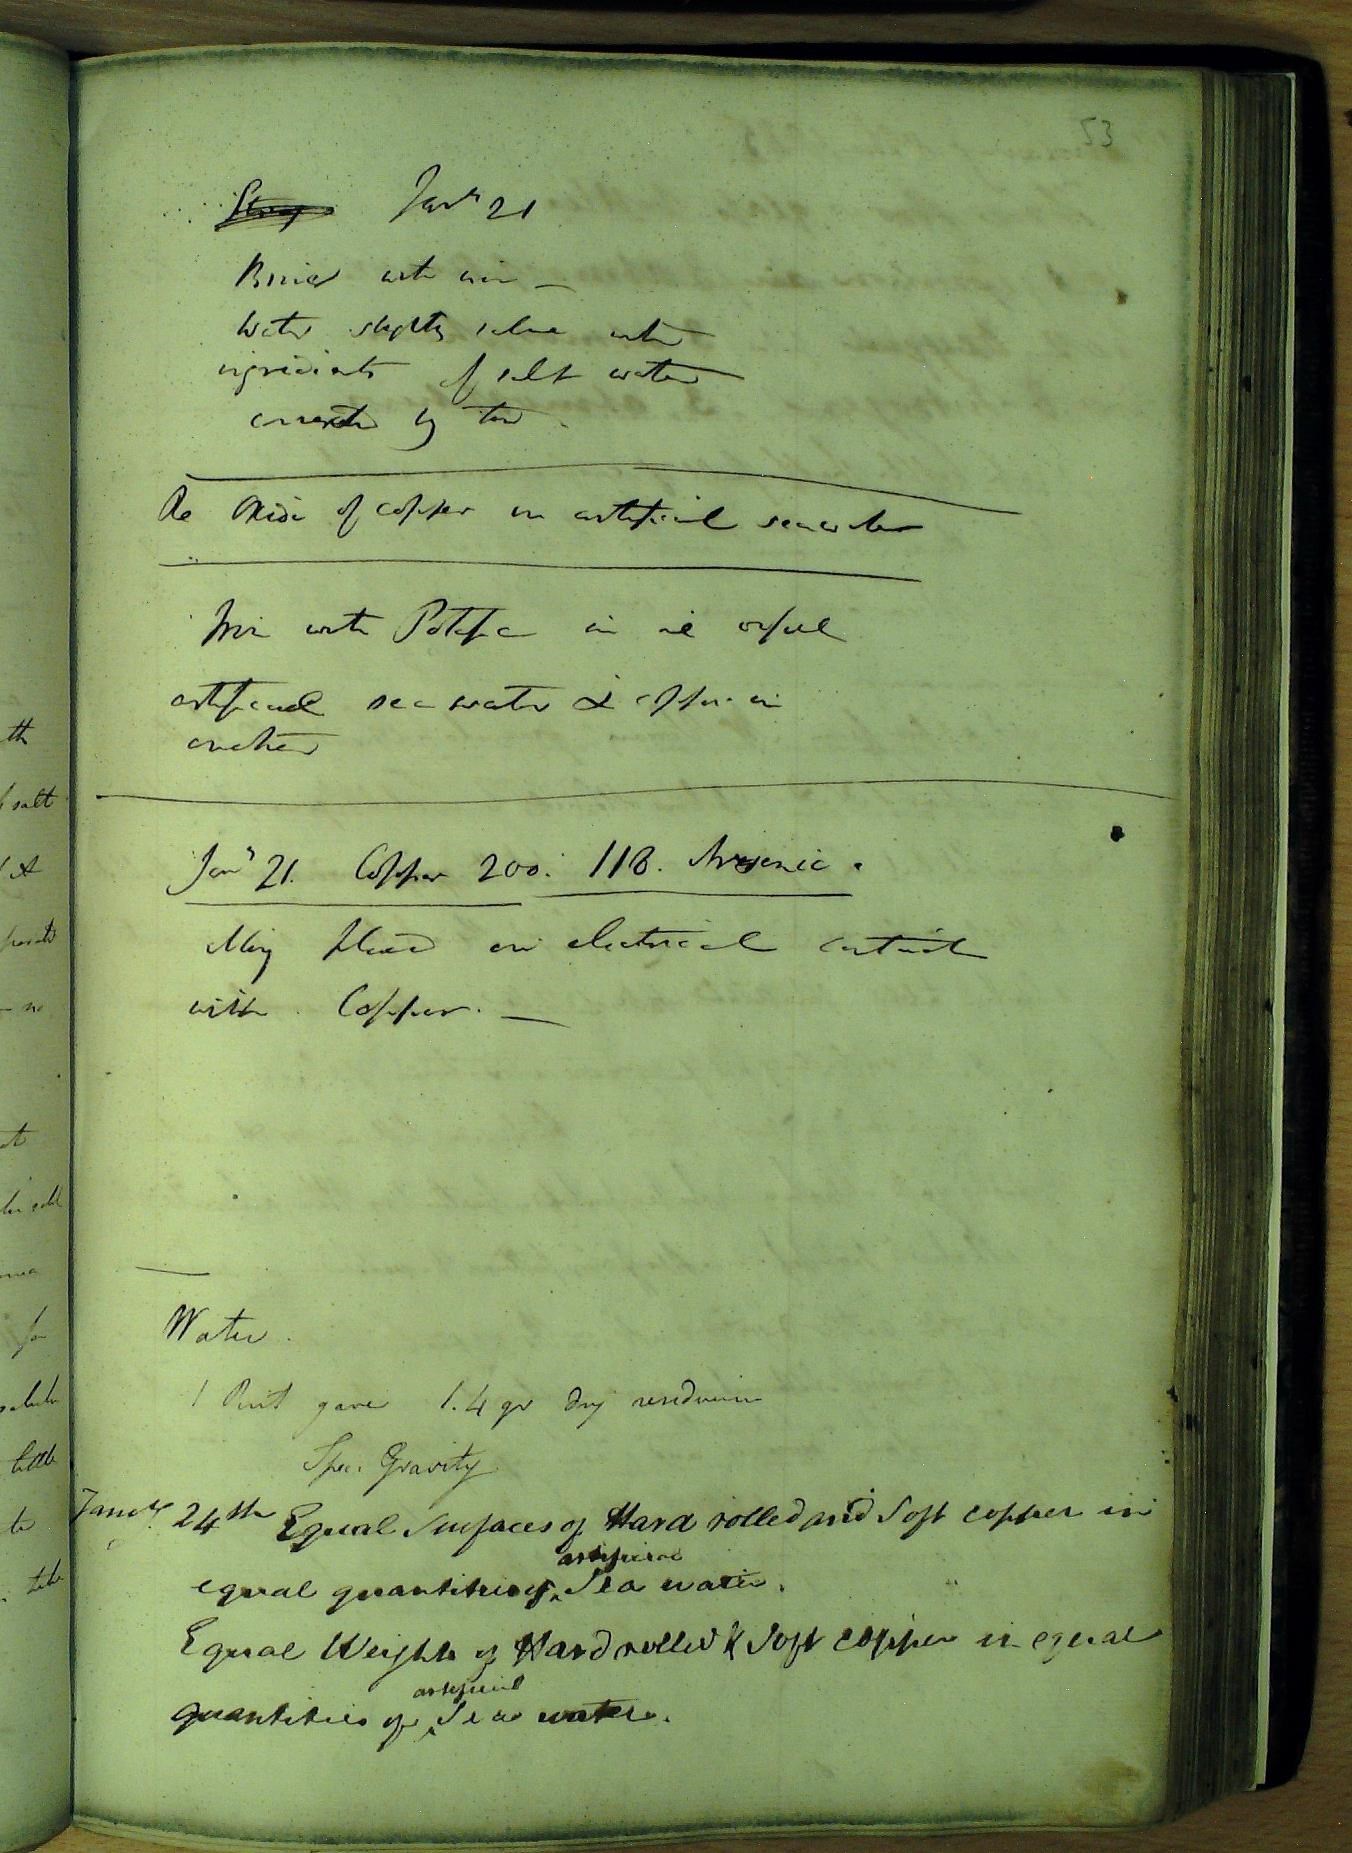 53
Jany 21
with iron –
Water slightly saline with
ingredients of salt water
by
Oxide of copper in artificial seawater
Iron with Potassa in
artificial sea water & copper in
another
Jany 21. Copper 200. 118. Arsenic.
Alloy placed in electrical contact
with Copper. –
Water.
1 Pint gave 1.4 gr dry residuum
Spec. Gravity
24th Equal Surfaces of Hard rolled and Soft copper in
artificial
equal quantities of Sea water.
Equal Weights of Hard rolled & Soft copper in equal
artificial
quantities of Sea water.
th
salt
little